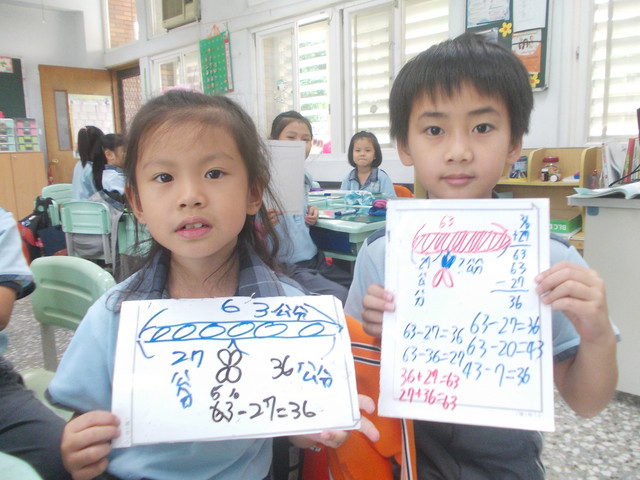 63公分
27
公
分
36公分
63-27=36
63
27
公
分
?公分
36
+27
63
63
-27
36
63-27=36
63-36=27
36+27=63
27+36=63
63-27=36
63-20=43
43-7=36